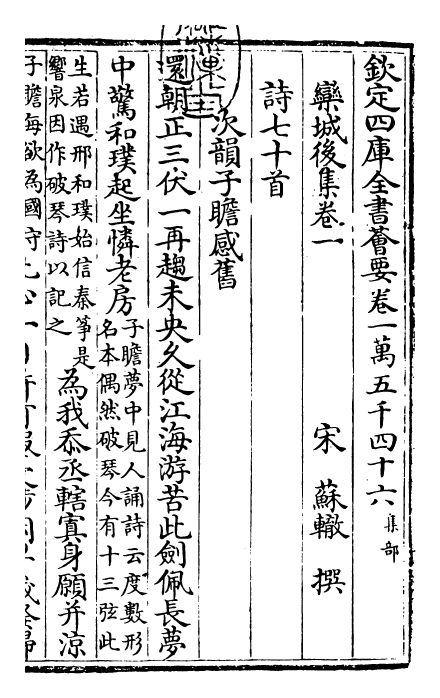 欽定四庫全書薈要卷一萬五千四十六集部
欒城後集卷一
宋 蘇轍 撰
詩七十首
次韻子瞻感舊
還朝正三伏一再趨未央久從江海游苦此劍佩長夢
中驚和璞起坐憐老房
子瞻夢中見人誦詩云度數形
名本偶然破琴今有十三弦此
生若遇邢和璞始信秦箏是
響泉因作破琴詩以記之
為我忝丞轄寘身願并涼
子瞻每欲為國守